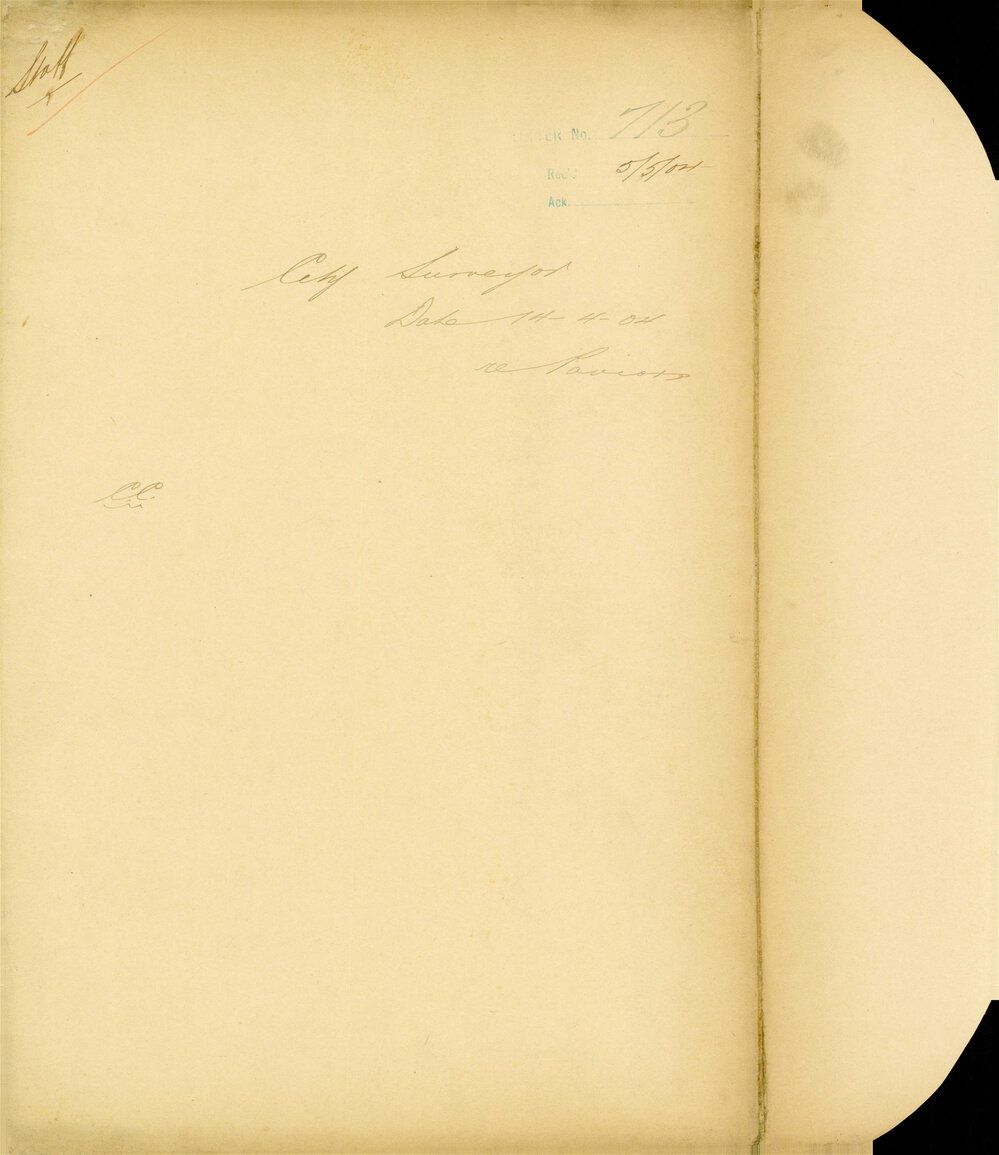 Staff
LETTER No. 713
Rec'd 5/5/04
Ack.
City Surveyor
Date 14-4-04
re Paviors